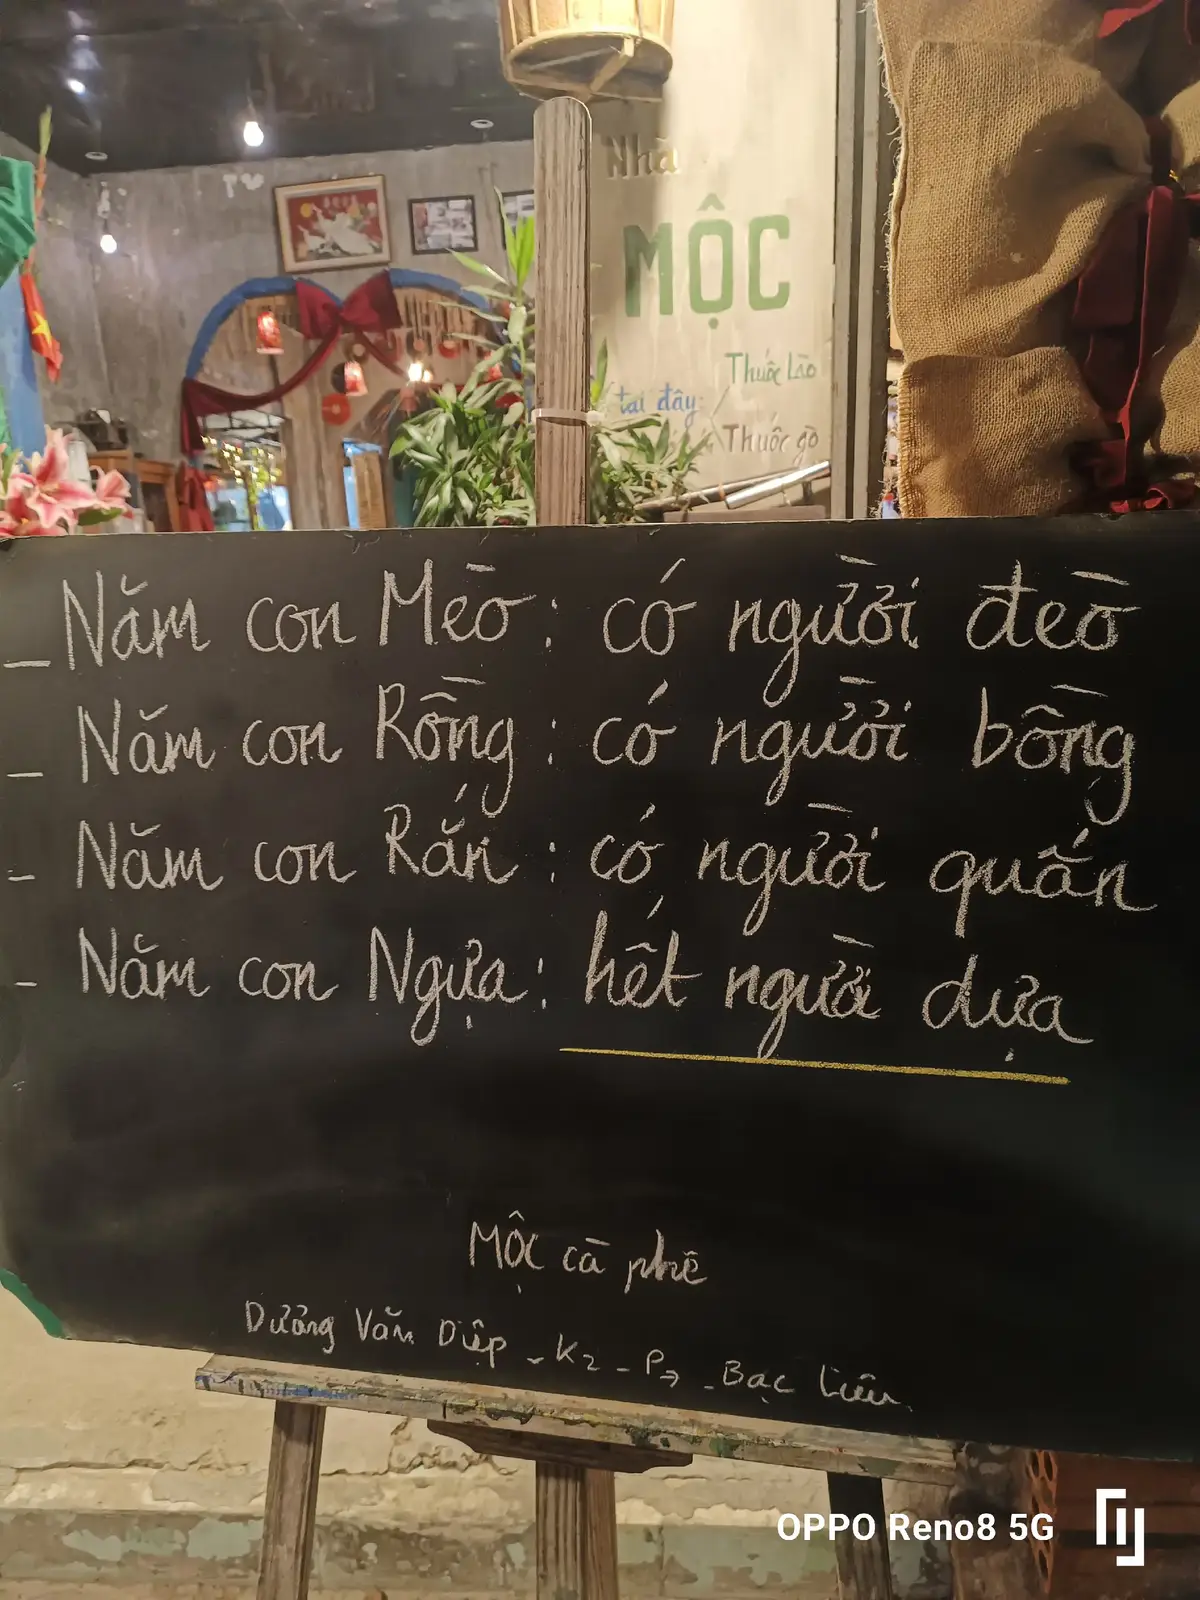 Nhà
MỘC
Thuốc Lào
tại đây
Thuốc gò
_ Năm con Mèo : có người đèo
_ Năm con Rồng : có người bồng
- Năm con Rắn : có người quấn
- Năm con Ngựa : hết người dựa
Mộc cà phê
Dương Văn Diệp - K2 - P7 - Bạc Liêu
OPPO Reno8 5G